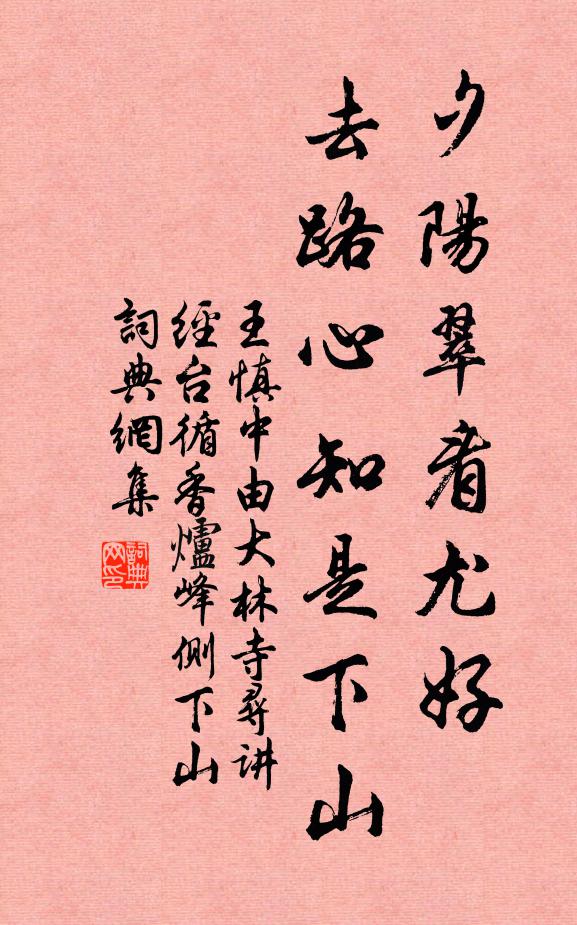 夕陽翠看尤好
去路心知是下山
王慎中由大林寺尋讲
經台循香爐峰側下山
詞典網集
詞典
网印